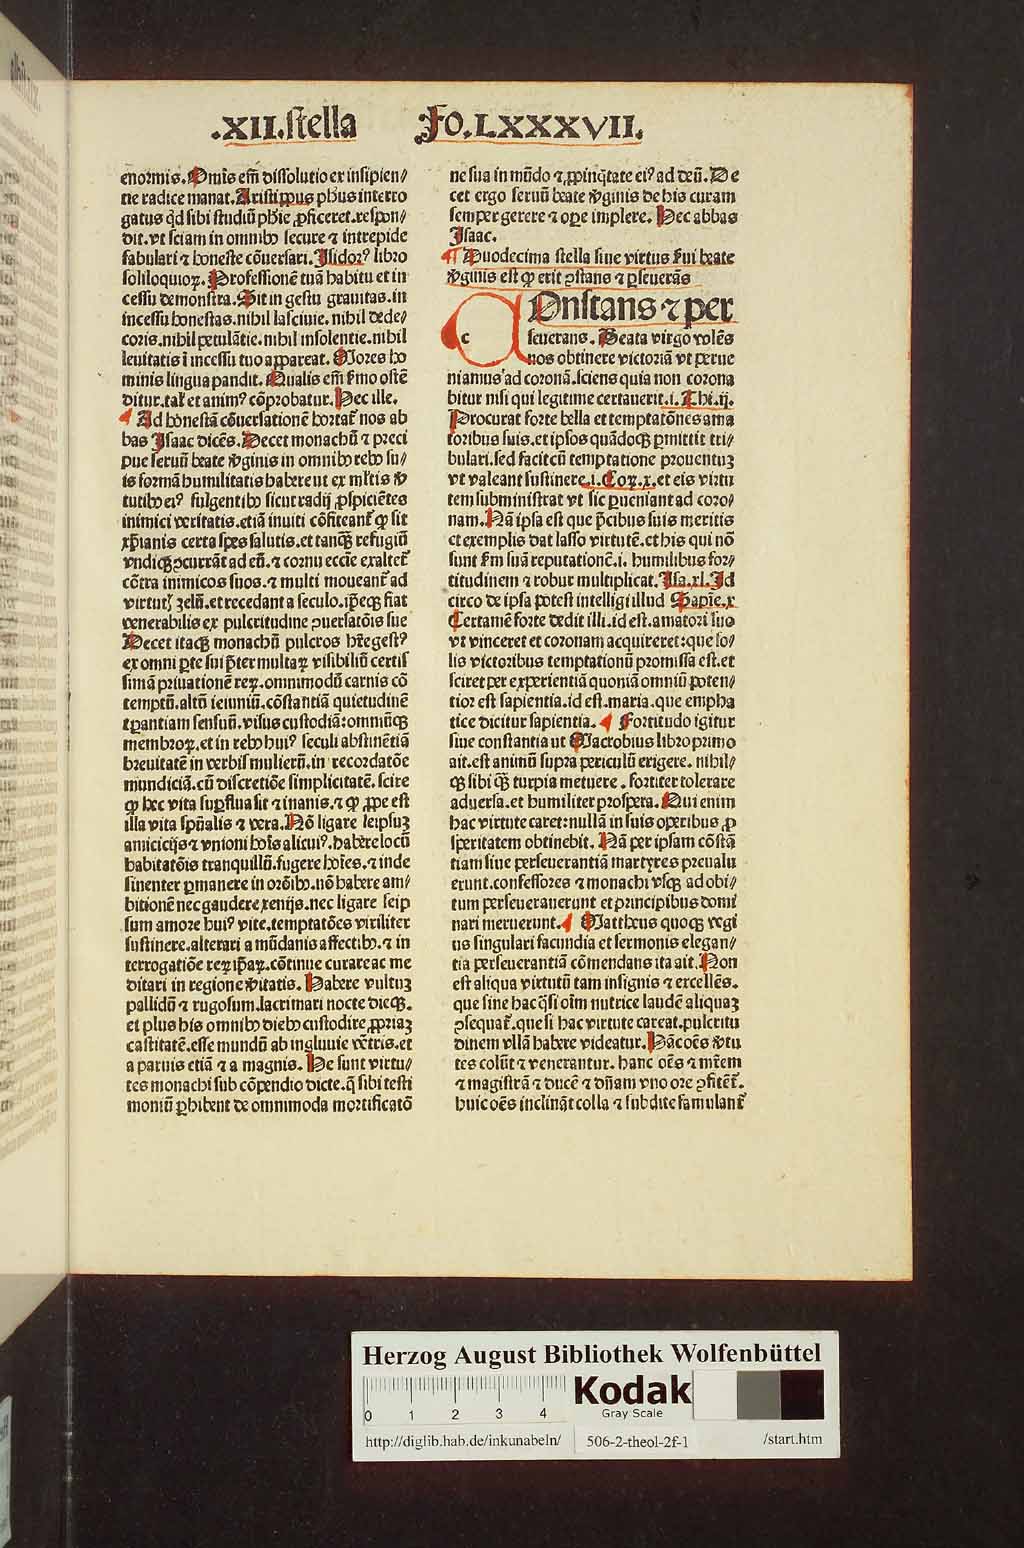 .XII.stella FO.LXXXVII.
enormis. Om̄is em̄ dissolutio ex insipien⸗
tie radice manat. Aristippus ph̄us interro
gatus qd̄ sibi studiū ph̄ie ꝓficeret. respon⸗
dit. vt sciam in omnibꝰ secure ⁊ intrepide
fabulari ⁊ honeste cōuersari. Isidorꝰ libro
soliloquioꝝ. Professionē tuā habitu et in
cessu demonstra. Sit in gestu grauitas. in
incessu honestas. nihil lasciuie. nihil dede⸗
coris. nihil petulātie. nihil insolentie. nihil
leuitatis ī incessu tuo appareat. Mores ho
minis lingua pandit. Qualis em̄ ẜmo ostē
ditur. tal̄ et animꝰ cōprobatur. Hec ille.
¶ Ad honestā cōuersationē hortat᷑ nos ab
bas Isaac dicēs. Decet monachū ⁊ preci
pue seruū beate v̄ginis in omnibꝰ rebꝰ su⸗
is formā humilitatis habere ut ex ml̄tis v̄
tutibꝰ eiꝰ fulgentibꝰ sicut radij ꝓspiciētes
inimici veritatis. etiā inuiti cōfiteant᷑ ꝙ sit
xp̄ianis certa spes salutis. et tanqꝫ refugiū
vndiqꝫ ꝯcurrāt ad eū. ⁊ cornu eccīe exaltet᷑
cōtra inimicos suos. ⁊ multi moueant᷑ ad
virtutꝭ zelū. et recedant a seculo. ip̄eqꝫ fiat
venerabilis ex pulcritudine ꝯuersatōis sue
Decet itaqꝫ monachū pulcros hr̄e gestꝰ
ex omni ꝑte sui p̄ter multaꝝ visibiliū certis
simā priuationē reꝝ. omnimodū carnis cō
temptū. altū ieiuniū. cōstantiā quietudinē
tꝑantiam sensuū. visus custodiā: omniūqꝫ
membroꝝ. et in rebꝰ huiꝰ seculi abstinētiā
breuitatē in verbis mulierū. in recordatōe
mundiciā. cū discretiōe simplicitatē. scire
ꝙ hec vita suꝑflua sit ⁊ inanis. ⁊ ꝙ ꝓpe est
illa vita sp̄ualis ⁊ vera. Nō ligare seipsuꝫ
amicicijs ⁊ vnioni hoīs alicuiꝰ. habere locū
habitatōis tranquillū. fugere hoīes. ⁊ inde
sinenter ꝑmanere in or̄oībꝰ. nō habere am⸗
bitionē nec gaudere xenijs. nec ligare seip
sum amore huiꝰ vite. temptatōes viriliter
sustinere. alterari a mūdanis affectibꝰ. ⁊ in
terrogatiōe reꝝ ip̄aꝝ. cōtinue curare ac me
ditari in regione v̄itatis. Habere vultuꝫ
pallidū ⁊ rugosum. lacrimari nocte dieqꝫ.
et plus his omnibꝰ diebꝰ custodire ꝓpriaꝫ
castitatē. esse mundū ab ingluuie vētris. et
a paruis etiā ⁊ a magnis. He sunt virtu⸗
tes monachi sub cōpendio dicte. q̄ sibi testi
moniū ꝑhibent de omnimoda mortificatō
ne sua in mūdo ⁊ ꝓpinq̄tate eiꝰ ad deū. De
cet ergo seruū beate v̄ginis de his curam
semper gerere ⁊ oꝑe implere. Hec abbas
Isaac.
¶ Duodecima stella siue virtus ẜui beate
v̄ginis est ꝙ erit ꝯstans ⁊ ꝑseuerās
c Onstans ⁊ per
seuerans. Beata virgo volēs
nos obtinere victoriā vt perue
niamus ad coronā. sciens quia non corona
bitur nisi qui legitime certauerit. i. Thi. ij.
Procurat forte bella et temptatōnes ama
toribus suis. et ipsos quādoqꝫ ꝑmittit tri⸗
bulari. sed facit cū temptatione prouentuꝫ
vt valeant sustinere. i. Coꝝ. x. et eis virtu
tem subministrat vt sic ꝑueniant ad coro⸗
nam. Nā ipsa est que p̄cibus suis meritis
et exemplis dat lasso virtutē. et his qui nō
sunt ẜm suā reputationē. i. humilibus for⸗
titudinem ⁊ robur multiplicat. Isa. xl. Id
circo de ipsa potest intelligi illud Sapīe. x
Certamē forte dedit illi. id est. amatori suo
vt vinceret et coronam acquireret: que so⸗
lis victoribus temptationū promissa est. et
sciret per experientiā quoniā omniū poten⸗
tior est sapientia. id est. maria. que empha
tice dicitur sapientia. ¶ Fortitudo igitur
siue constantia ut Macrobius libro primo
ait. est animū supra periculū erigere. nihil⸗
qꝫ sibi qꝫ̄ turpia metuere. fortiter tolerare
aduersa. et humiliter prospera. Qui enim
hac virtute caret: nullā in suis operibus ꝓ
speritatem obtinebit. Nā per ipsam cōstā
tiam siue perseuerantiā martyres preualu
erunt. confessores ⁊ monachi vsqꝫ ad obi⸗
tum perseuerauerunt et principibus domi
nari meruerunt. ¶ Mattheus quoqꝫ vegi
us singulari facundia et sermonis elegan⸗
tia perseuerantiā cōmendans ita ait. Non
est aliqua virtutū tam insignis ⁊ excellēs.
que sine hac q̄si oīm nutrice laudē aliquaꝫ
ꝯsequat᷑. que si hac virtute careat. pulcritu
dinem vllā habere videatur. Hāc oēs v̄tu
tes colūt ⁊ venerantur. hanc oēs ⁊ mr̄em
⁊ magistrā ⁊ ducē ⁊ dn̄am vno ore ꝯfitēt᷑.
huic oēs inclināt colla ⁊ subdite famulant᷑
Herzog August Bibliothek Wolfenbüttel
0 1 2 3 4
Kodak
Gray Scale
http://diglib.hab.de/inkunabeln/ 506-2-theol-2f-1 /start.htm